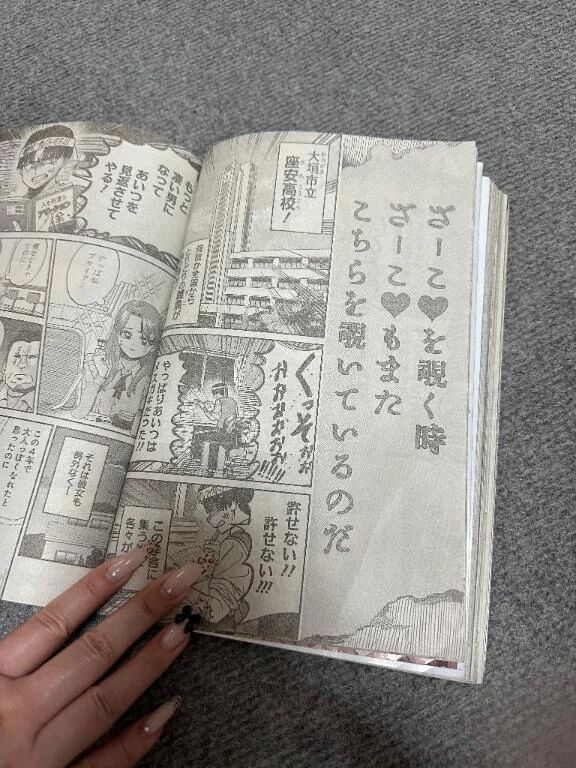 ざーこ♥を覗く時
ざーこ♥もまた
こちらを覗いているのだ
大垣市立
座安高校!
くっそぉぉ
やっぱりあいつは
許せない!!
許せない!!!
この学舎に
集う
各々が
もっと
凄い男に
なって
あいつを
見返させて
やる!
やっぱ私
痩せてきた
なのに
それは彼女も
例外なく―
この4年で
大人っぽくなれたと
思ったのに